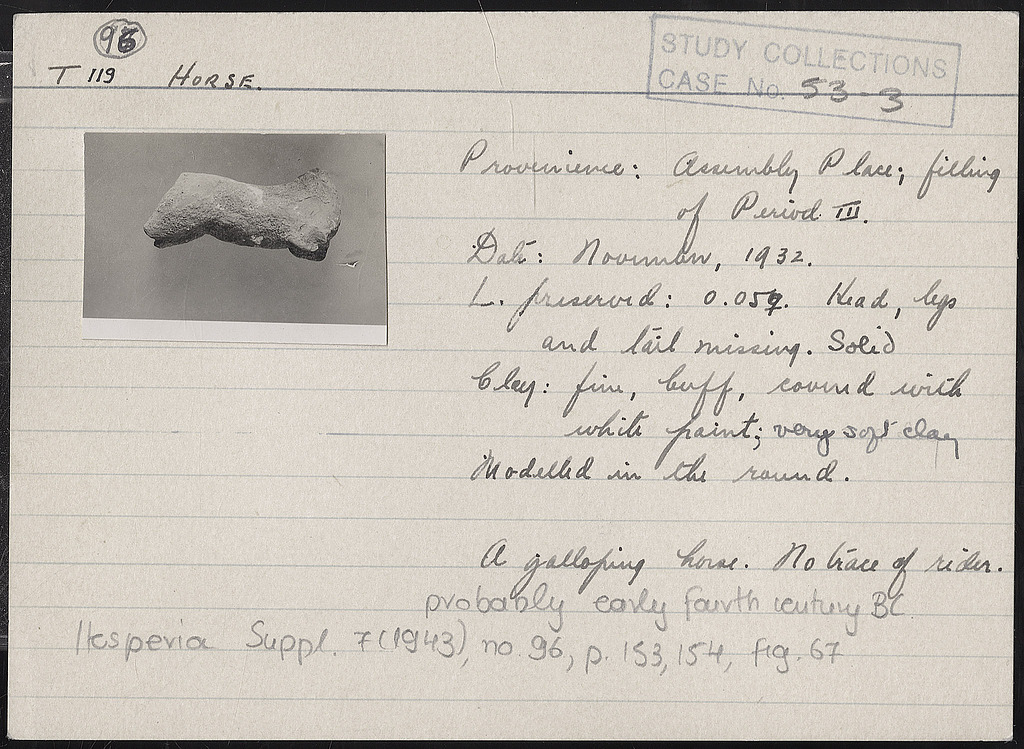 96
T 119 HORSE.
STUDY COLLECTIONS
CASE No. 53-3
Provenience: Assembly Place; filling
of Period III.
Date: November, 1932.
L. preserved: 0.059. Head, legs
and tail missing. Solid
Clay: fine, buff, covered with
white paint; very soft clay
Modelled in the round.
A galloping horse. No trace of rider.
probably early fourth century BC
Hesperia Suppl. 7 (1943), no. 96, p. 153, 154, fig. 67